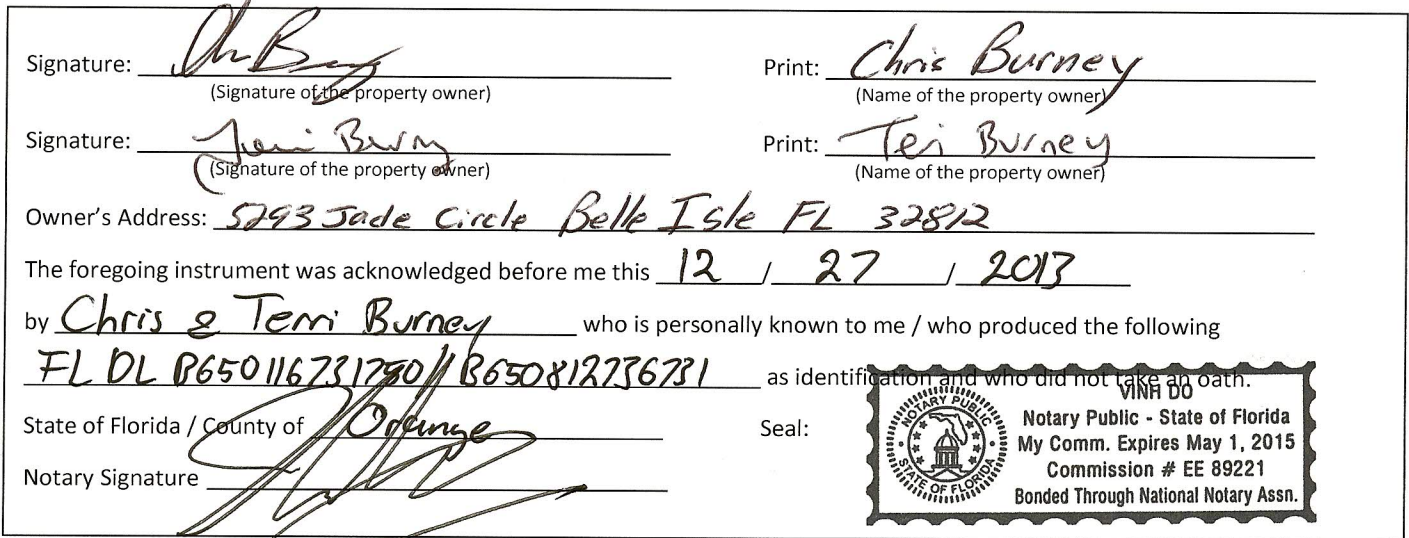 Signature: Print: Chris Burney
(Signature of the property owner) (Name of the property owner)
Signature: Print: Teri Burney
(Signature of the property owner) (Name of the property owner)
Owner's Address: 5293 Jade Circle Belle Isle FL 32812
The foregoing instrument was acknowledged before me this 12 / 27 / 2013
by Chris & Terri Burney who is personally known to me / who produced the following
FL DL B650812736731 as identification and who did not take an oath.
State of Florida / County of Orange Seal:
Notary Signature
VINH DO
Notary Public - State of Florida
My Comm. Expires May 1, 2015
Commission # EE 89221
Bonded Through National Notary Assn.
NOTARY PUBLIC
STATE OF FLORIDA